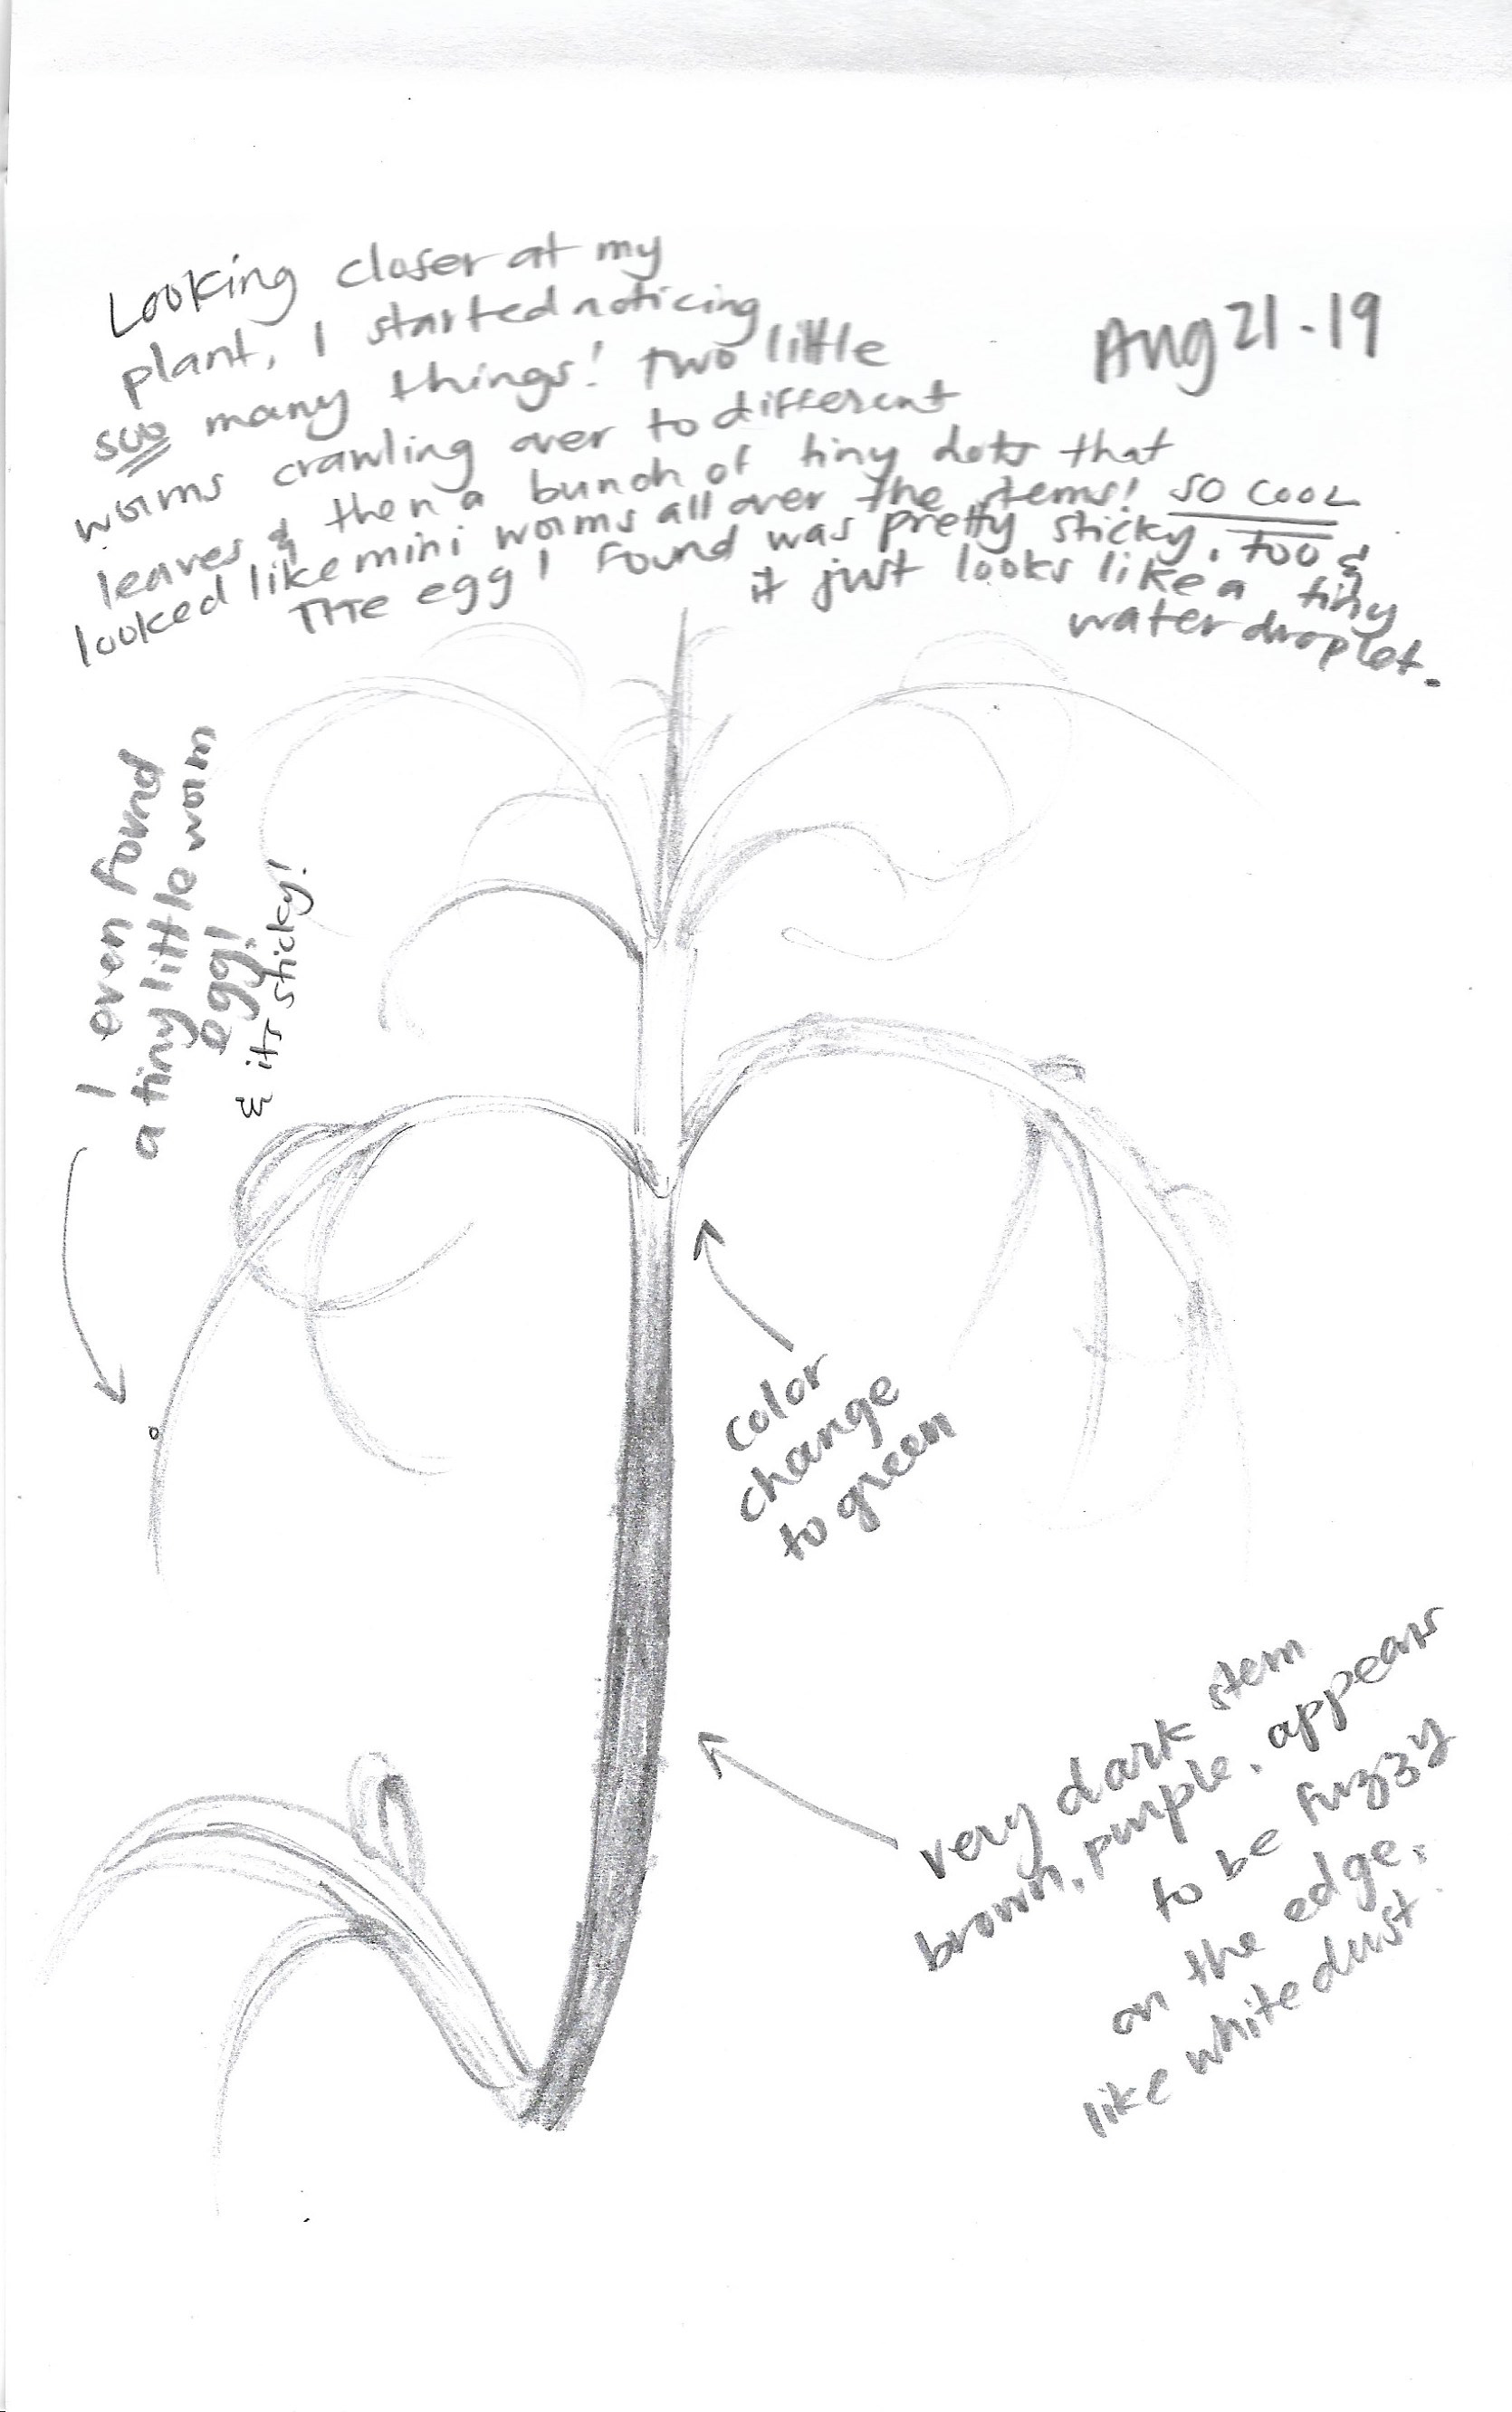 Looking closer at my
plant, I started noticing
soo many things! Two little
worms crawling over to different
leaves & then a bunch of tiny dots that
looked like mini worms all over the stems! SO COOL
THE egg I found was pretty sticky, too &
it just looks like a tiny
water droplet.
Aug 21-19
I even found
a tiny little worm
egg!
& its sticky!
color
change
to green
very dark stem
brown, purple, appears
to be fuzzy
on the edge,
like white dust.